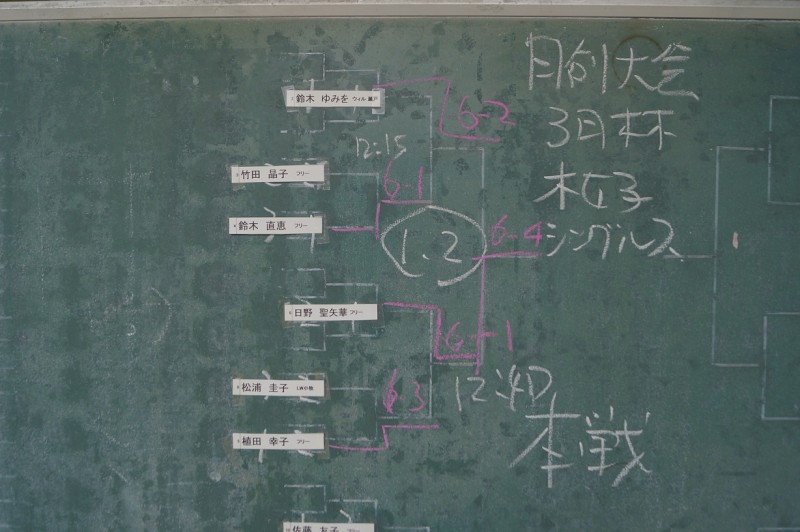 月例大会
3日杯
女子
シングルス
鈴木 ゆみを
6-2
12:15
竹田 晶子 フリー
6-1
鈴木 直恵 フリー
1、2
6-4
日野 聖矢華 フリー
6-1
松浦 圭子
6-3
12
植田 幸子 フリー
本戦
佐藤 友子 フリー